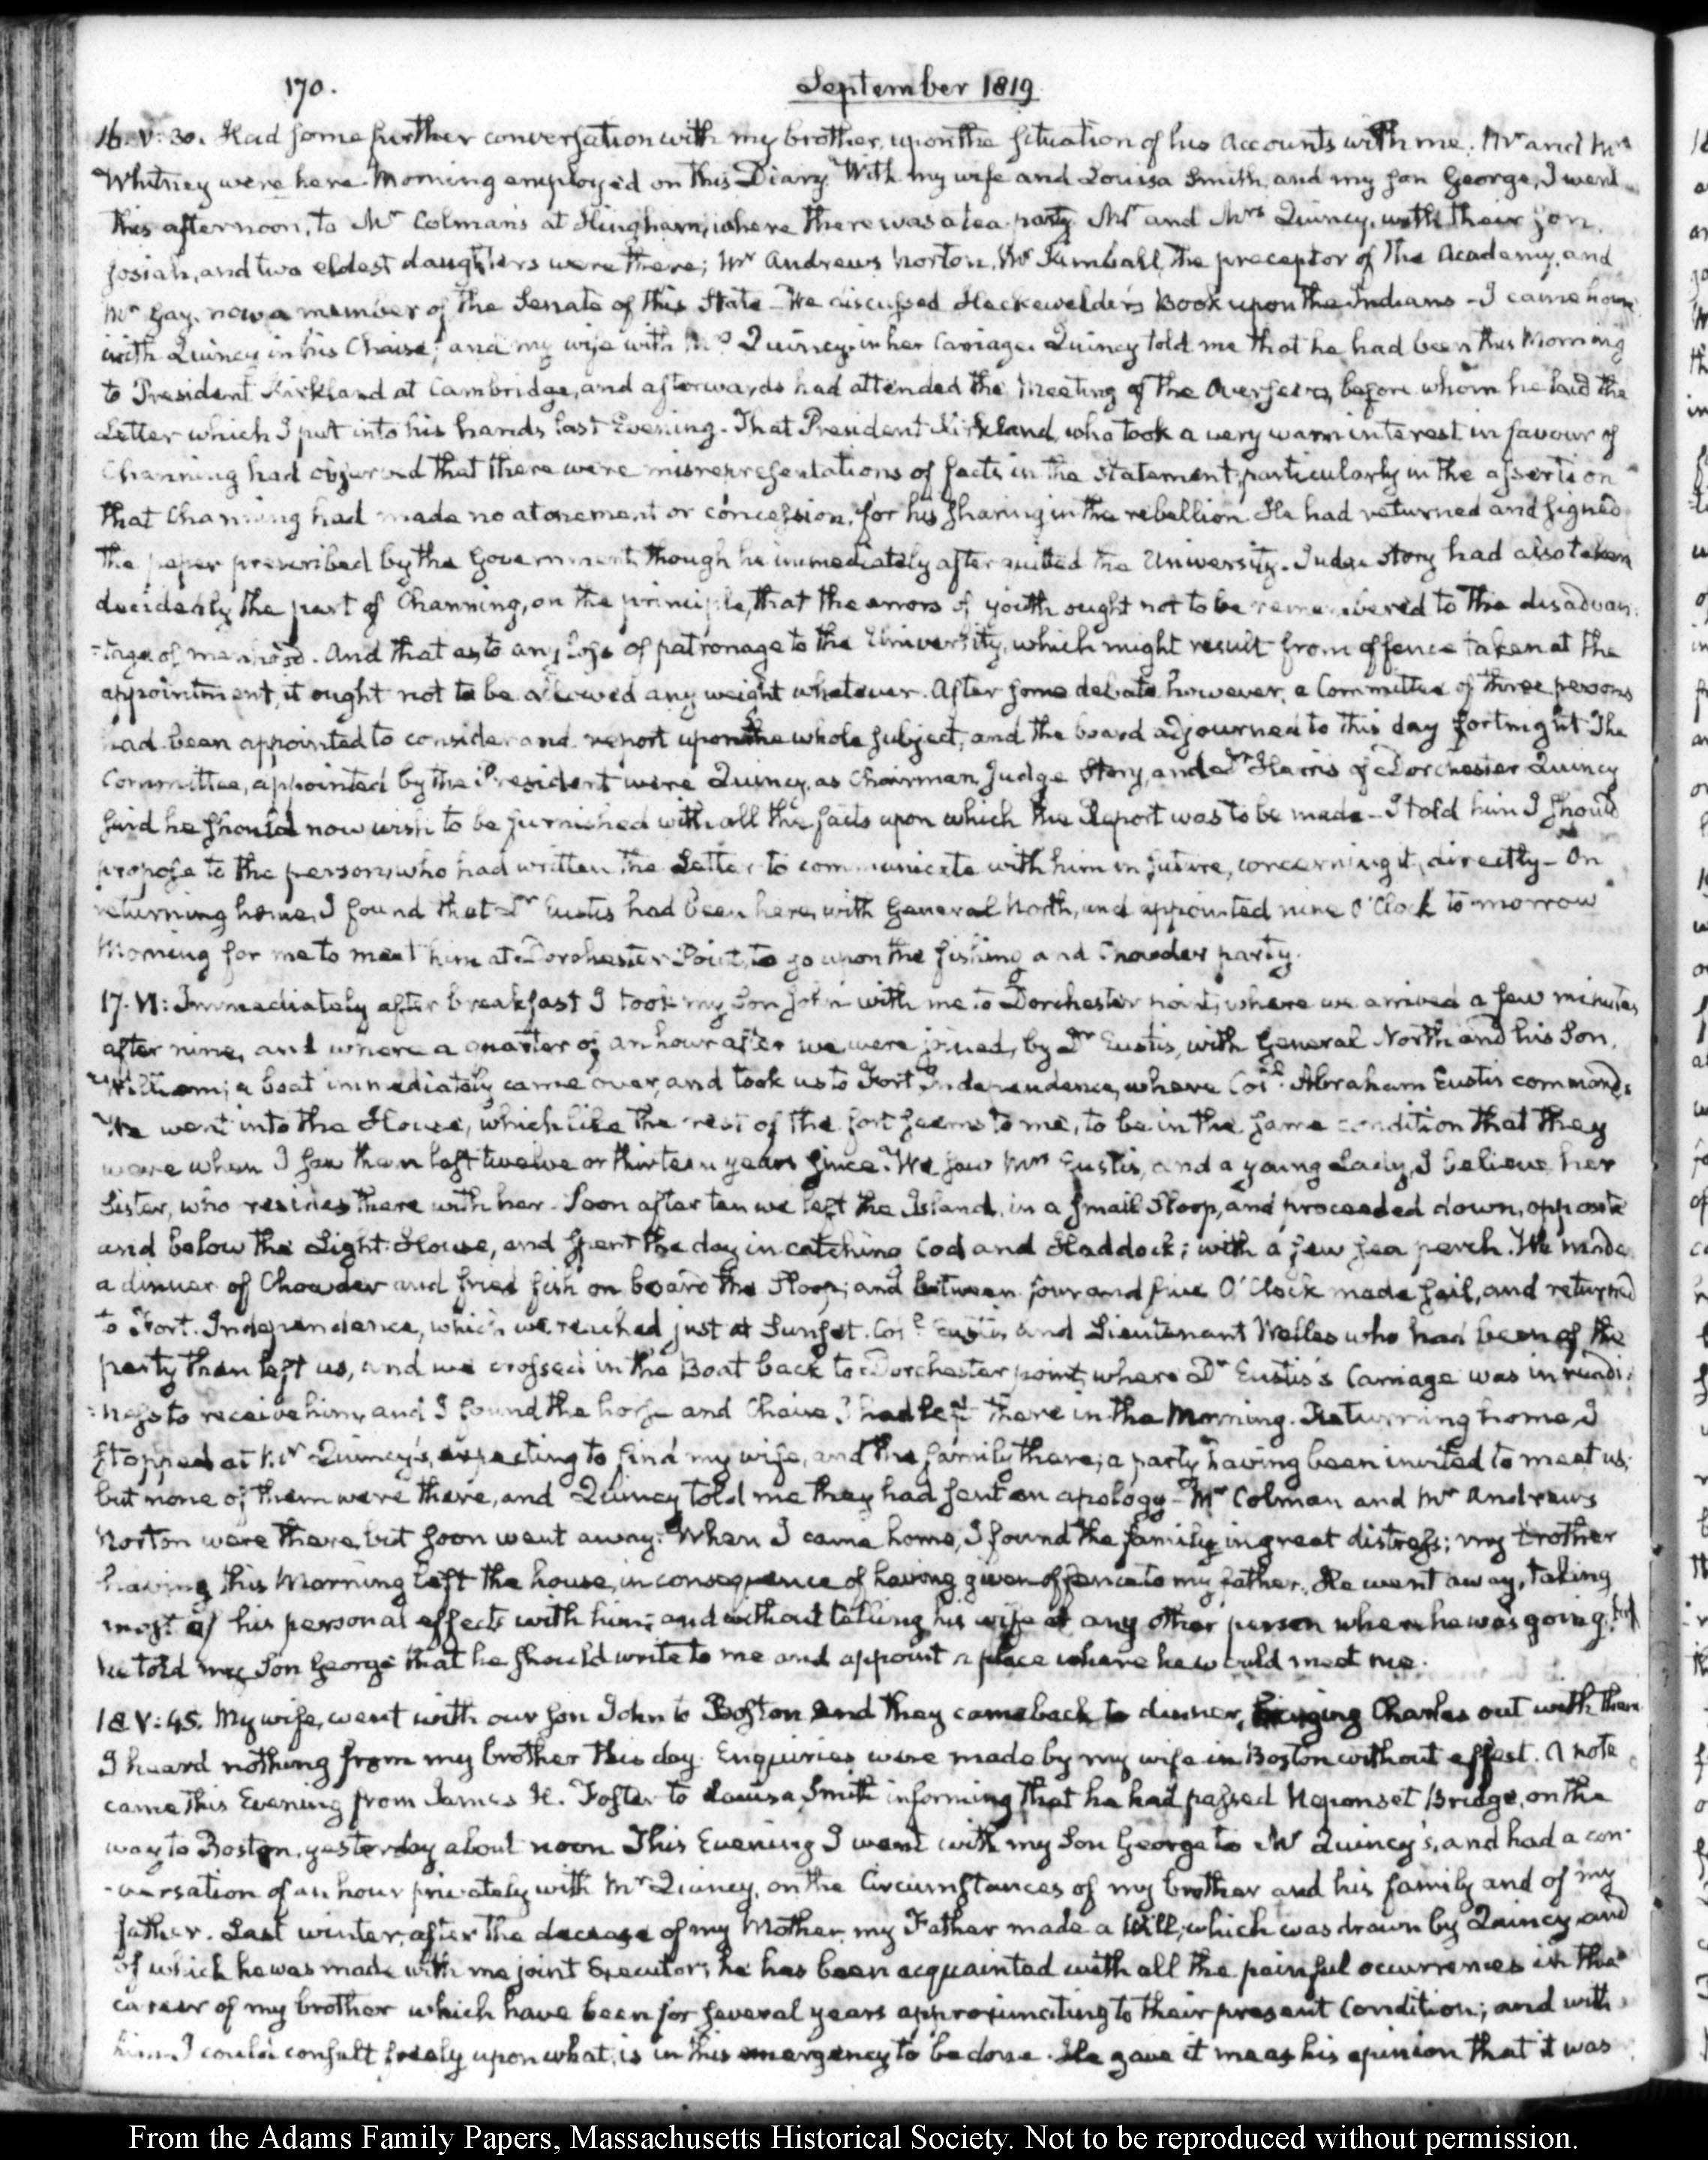 170.
September 1819
16. V:30. Had some further conversation with my brother, upon the situation of his accounts with me. Mr and Mrs
Whitney were here. Morning employed on this Diary. With my wife and Louisa Smith and my son George, I went
this afternoon, to Mr Colman's at Hingham, where there was a tea party. Mr and Mrs Quincy, with their son
Josiah, and two eldest daughters were there; Mr Andrews Norton, Mr Kimball, the preceptor of the Academy, and
Mr Gay, now a member of the Senate of this State. We discussed Heckewelder's Book upon the Indians - I came home
with Quincy in his Chaise; and my wife with Mrs Quincy in her Carriage. Quincy told me that he had been this Morning
to President Kirkland at Cambridge, and afterwards had attended the Meeting of the Overseers, before whom he laid the
Letter which I put into his hands last Evening. That President Kirkland, who took a very warm interest in favour of
Channing had observed that there were misrepresentations of facts in the statement, particularly in the assertion
that Channing had made no atonement or concession, for his sharing in the rebellion. He had returned and signed
the paper prescribed by the Government, though he immediately after quitted the University. Judge Story had also taken
decidedly the part of Channing, on the principle, that the errors of youth ought not to be remembered to the disadvan-
-tage of manhood. And that as to any loss of patronage to the University, which might result from offence taken at the
appointment, it ought not to be allowed any weight whatever. After some debate, however, a Committee of three persons
had been appointed to consider and report upon the whole subject, and the board adjourned to this day fortnight. The
Committee, appointed by the President were Quincy, as Chairman, Judge Story, and Dr Harris of Dorchester. Quincy
said he should now wish to be furnished with all the facts upon which the Report was to be made - I told him I should
propose to the person, who had written the Letter to communicate with him in future, concerning it, directly - On
returning home, I found that Dr Eustis had been here, with General North, and appointed nine O'Clock to-morrow
Morning for me to meet him at Dorchester Point, to go upon the fishing and Chowder party.
17. VI: Immediately after breakfast I took my Son John with me to Dorchester point, where we arrived a few minutes
after nine, and where a quarter of an hour after we were joined, by Dr Eustis, with General North and his Son,
William; a boat immediately came over, and took us to Fort Independence, where Col. Abraham Eustis commands.
We went into the House, which like the rest of the fort seems to me, to be in the same condition that they
were when I saw them last twelve or thirteen years since. We saw Mrs Eustis, and a young Lady, I believe her
Sister, who resides there with her. Soon after ten we left the Island, in a small Sloop, and proceeded down, opposite
and below the Light-House, and spent the day in catching Cod and Haddock; with a few sea perch. We made
a dinner of Chowder and fried fish on board the Sloop; and between four and five O'Clock made sail, and returned
to Fort Independence, which we reached just at Sunset. Col. Eustis and Lieutenant Welles who had been of the
party then left us, and we crossed in the Boat back to Dorchester point, where Dr Eustis's Carriage was in readi-
-ness to receive him, and I found the horse and Chaise I had left there in the Morning. Returning home, I
stopped at Mr Quincy's, expecting to find my wife, and the family there; a party having been invited to meet us;
but none of them were there, and Quincy told me they had sent an apology - Mr Colman and Mr Andrews
Norton were there, but soon went away. When I came home, I found the family in great distress; my brother
having this Morning left the house, in consequence of having given offence to my father. He went away, taking
most of his personal effects with him; and without telling his wife or any other person where he was going; but
he told my Son George that he should write to me and appoint a place where he would meet me.
18 V:45. My wife, went with our son John to Boston and they came back to dinner, bringing Charles out with them
I heard nothing from my brother this day. Enquiries were made by my wife in Boston without effect. A note
came this Evening from James H. Foster to Louisa Smith informing that he had passed Neponset Bridge, on the
way to Boston, yesterday about noon. This Evening I went with my Son George to Mr Quincy's, and had a con-
-versation of an hour privately with Mr Quincy, on the Circumstances of my brother and his family and of my
father. Last winter, after the decease of my Mother, my Father made a Will, which was drawn by Quincy and
of which he was made with me joint Executor; he has been acquainted with all the painful occurrences in the
career of my brother which have been for several years approximating to their present Condition; and with
him I could consult freely upon what is in this emergency to be done. He gave it me as his opinion that it was
From the Adams Family Papers, Massachusetts Historical Society. Not to be reproduced without permission.